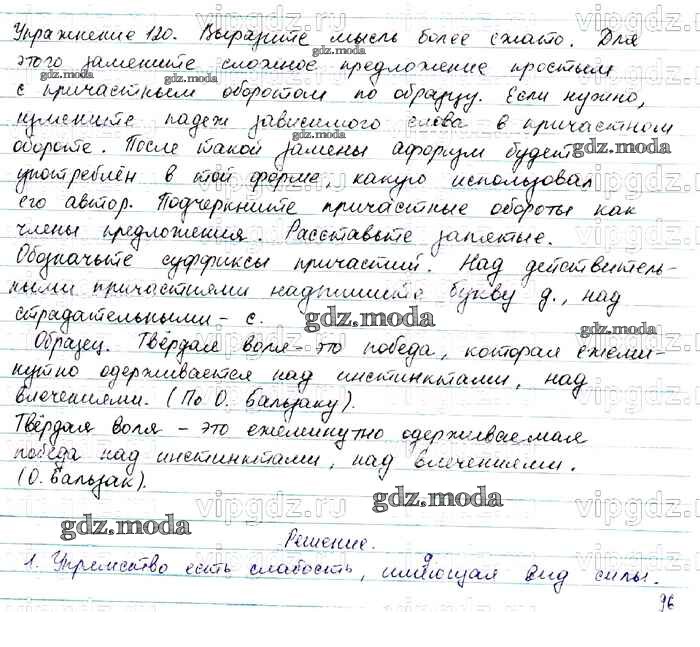 Упражнение 120. Выразите мысль более сжато. Для
этого замените сложное предложение простым
с причастным оборотом по образцу. Если нужно,
измените падеж зависимого слова в причастном
обороте. После такой замены афоризм будет
употреблён в той форме, какую использовал
его автор. Подчеркните причастные обороты как
члены предложения. Расставьте запятые.
Обозначьте суффиксы причастий. Над действитель-
ными причастиями надпишите букву д., над
страдательными - с.
Образец. Твёрдая воля - это победа, которая ежеми-
нутно одерживается над инстинктами, над
влечениями. (По О. Бальзаку).
Твёрдая воля - это ежеминутно одерживаемая
победа над инстинктами, над влечениями.
(О. Бальзак).
Решение.
д
1. Упрямство есть слабость, имеющая вид силы.
96
gdz.moda
gdz.moda
gdz.moda
gdz.moda
gdz.moda
gdz.moda
gdz.moda
gdz.moda
gdz.moda
gdz.moda
vipgdz.com